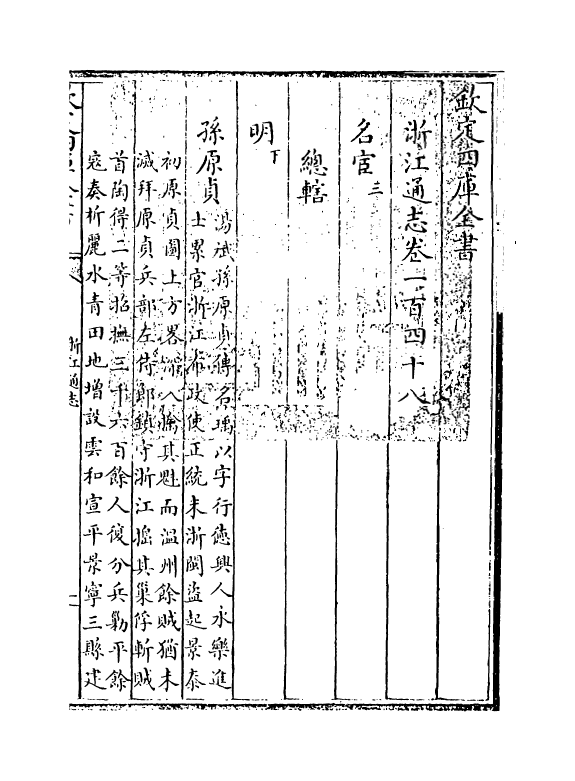 欽定四庫全書
浙江通志卷一百四十八
名宦三
總轄
明下
孫原貞
馮斌孫原貞傳名瑀以字行德興人永樂進
士累官浙江布政使正統末浙閩盗起景泰
初原貞圖上方畧
人擒其魁而温州餘賊猶未
滅拜原貞兵部左侍郎鎮守浙江搗其巢俘斬賊
首陶得二等招撫三千六百餘人復分兵勦平餘
寇奏析麗水青田地增設雲和宣平景寧三縣建
浙江通志